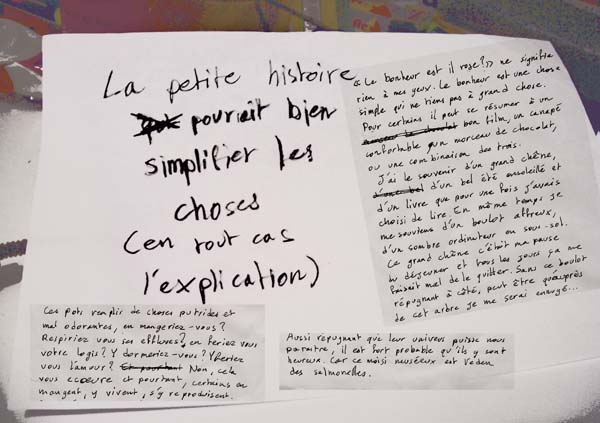 La petite histoire
qui pourrait bien
simplifier les
choses
(en tout cas
l'explication)
« Le bonheur est il rose? » ne signifie
rien à mes yeux. Le bonheur est une chose
simple qui ne tiens pas à grand chose.
Pour certains il peut se résumer à un
morceau de chocolat bon film, un canapé
confortable, un morceau de chocolat,
ou une combinaison des trois.
J'ai le souvenir d'un grand chêne,
d'un bel été ensoleillé et
d'un livre que pour une fois j'avais
choisi de lire. En même temps je
me souviens d'un boulot affreux,
d'un sombre ordinateur au sous-sol.
Ce grand chêne c'était ma pause
du déjeuner et tous les jours ça me
faisait mal de le quitter. Sans ce boulot
répugnant à côté, peut être qu'auprès
de cet arbre je me serai ennuyé...
Ces pots remplir de choses putrides et
mal odorantes, en mangeriez-vous?
Respiriez vous ses effluves?, en feriez vous
votre logis? Y dormeriez-vous? Y feriez
vous l'amour? Et pourtant Non, cela
vous ecoeure et pourtant, certains en
mangent, y vivent, s'y reproduisent.
Aussi repugnant que leur univers puisse nous
paraitre, il est fort probable qu'ils y sont
heureux. Car ce moisi nauséeux est l'éden
des salmonelles.